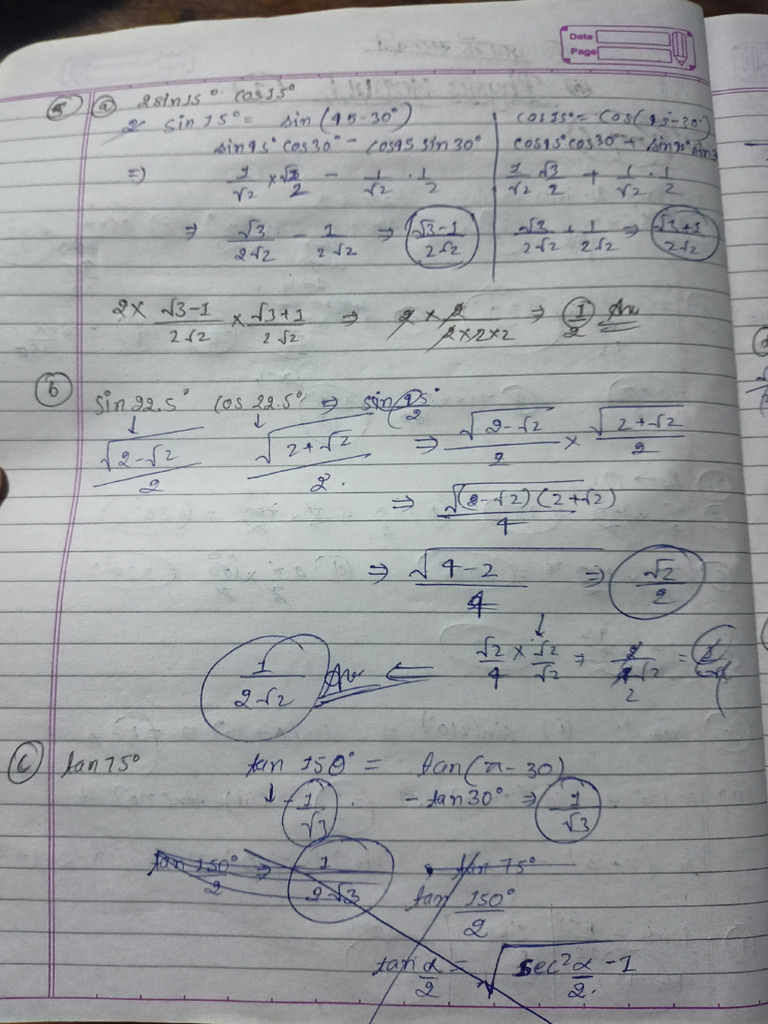 Date
Page
5 a 2sin15° cos15°
2 sin 15° = sin (45-30°)
sin45° cos30° - cos45 sin 30°
⇒ 1/√2 × √3/2 - 1/√2 . 1/2
⇒ √3/2√2 - 1/2√2 ⇒ √3-1/2√2
cos15° = cos(45-30°)
cos45°cos30 + sin45° sin3
1/√2 √3/2 + 1/√2 . 1/2
√3/2√2 + 1/2√2 ⇒ √3+1/2√2
2× √3-1/2√2 × √3+1/2√2 ⇒ 2 × 2/2×2×2 ⇒ 1/2 Ans
b sin 22.5° cos 22.5° ⇒ sin 45°/2
√2-√2/2 √2+√2/2. ⇒ √2-√2/2 × √2+√2/2
⇒ √(2-√2)(2+√2)/4
⇒ √4-2/4 ⇒ √2/2
√2/4 × √2/√2 ⇒ 2/4√2 =
2
1/2√2 Ans ⇐
c tan 75° tan 150° = tan(π-30)
-1/√3 - tan30° ⇒ -1/√3
tan 150°/2 ⇒ -1/2√3 tan 75°
tan 150°/2
tan α/2 = √sec²α/2. -1